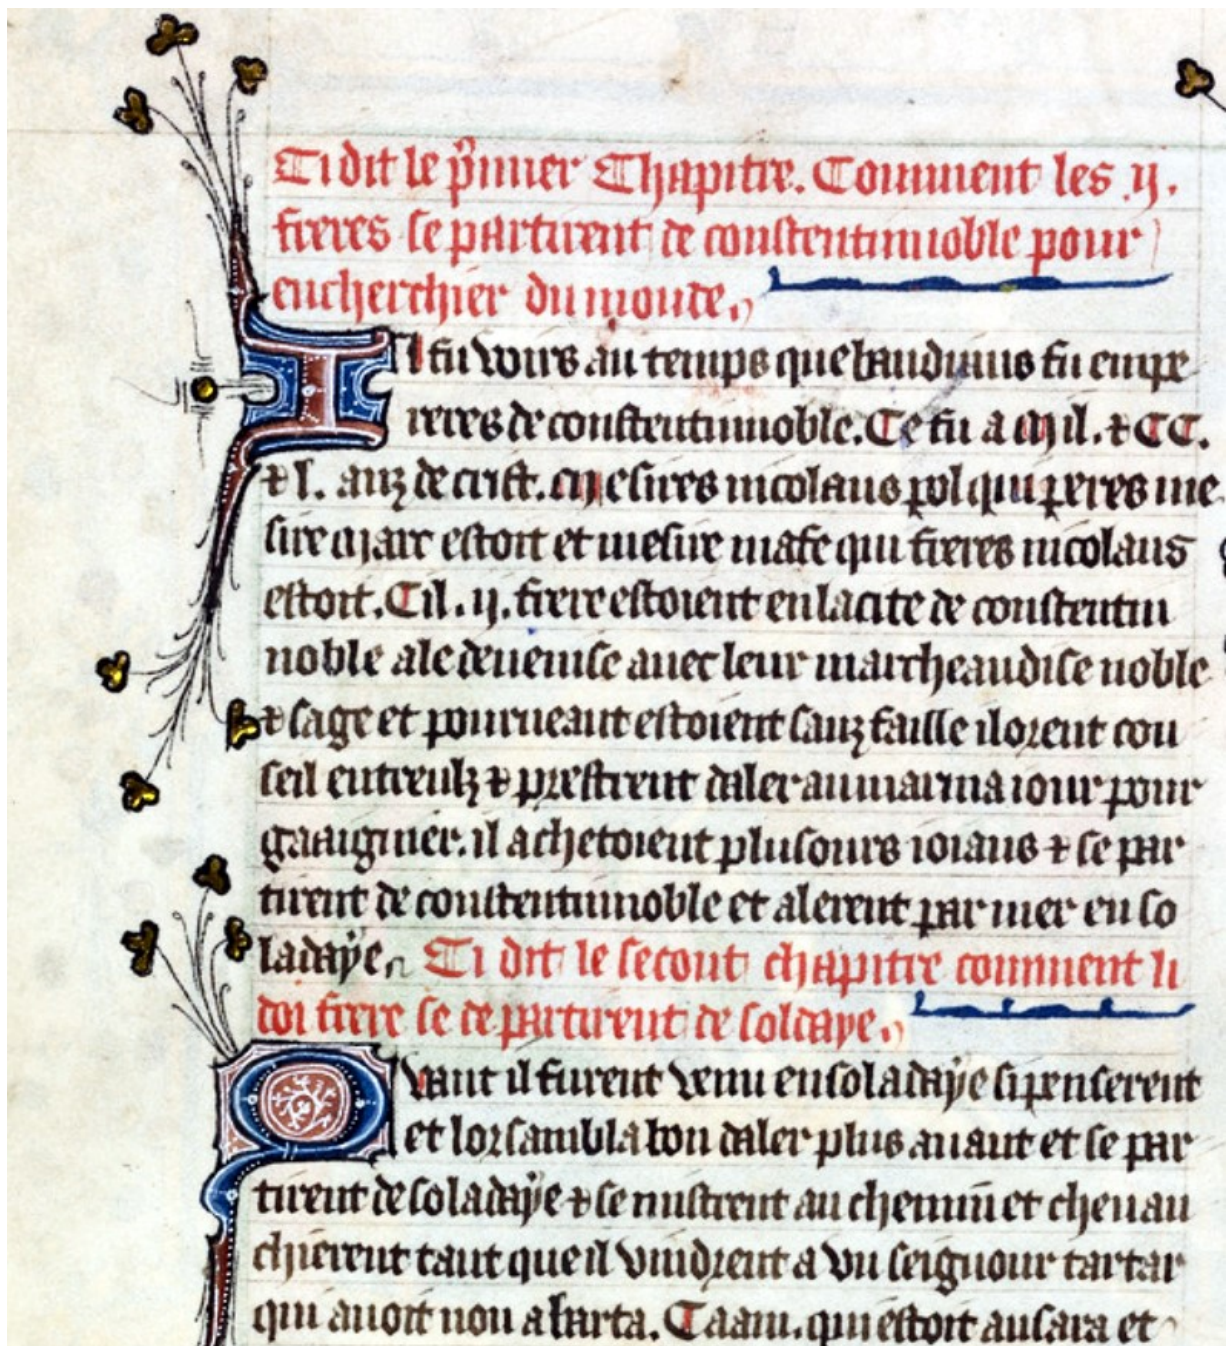 Ci dit le p̃mier Chapitre. Comment les .ij.
freres se partirent de constentinnoble pour
encherchier du monde.
Il fu voirs au temps que bauduins fu empe
reres de constentinnoble. Ce fu a Mil. ⁊ CC.
⁊ l. anz de crist. Mesires nicolaus pol qui peres me
sire Marc estoit et mesire mafe qui freres nicolaus
estoit. Cil .ij. frere estoient en la cite de constentin
noble ale de uenise auec leur marcheaudise noble
⁊ sage et pourueant estoient sanz faille il orent con
seil entreulz ⁊ prestrent daler au mar maiour pour
gaaignier. il achetoient plusours ioiaus ⁊ se par
tirent de constentinnoble et alerent par mer en so
ladaÿe. Ci dit le secont chapitre comment li
doi frere se departirent de soldaye.
Quant il furent venu en soladaÿe si penserent
et lor sambla bon daler plus auant et se par
tirent de soladaÿe ⁊ se mistrent au chemin et cheuau
chierent tant que il vindrent a vn seignour tartar
qui auoit non abarta. Caam. qui estoit au sara et